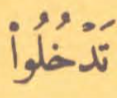 تَدْخُلُوا۟